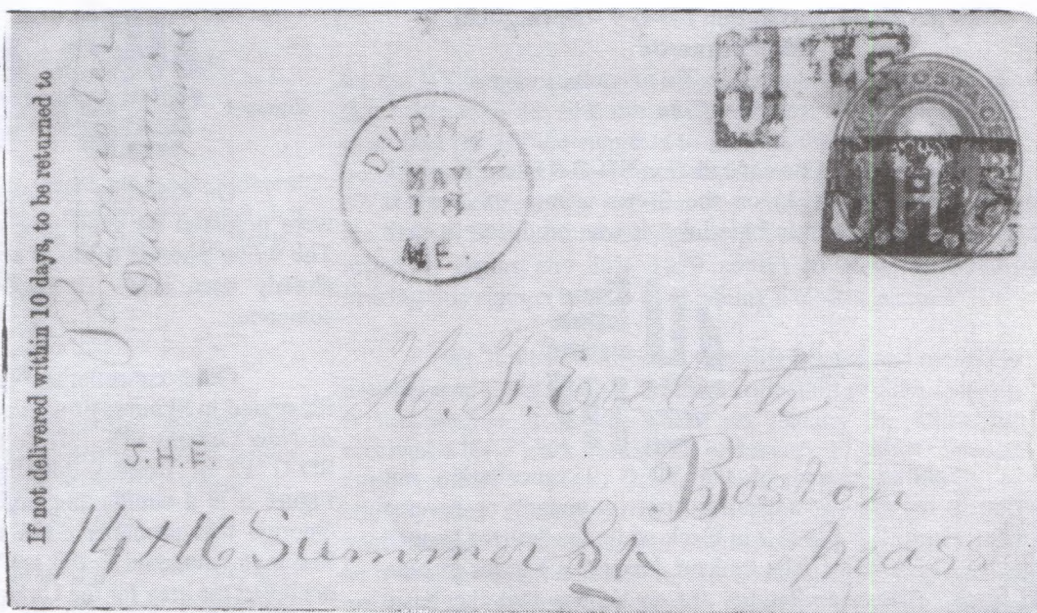 If not delivered within 10 days, to be returned to
Postmaster
Durham
Maine
DURHAM
MAY
18
ME.
JHE
POSTAGE
JHE
H. H. Eveleth
Boston
Mass
J.H.E.
14 & 16 Summer St